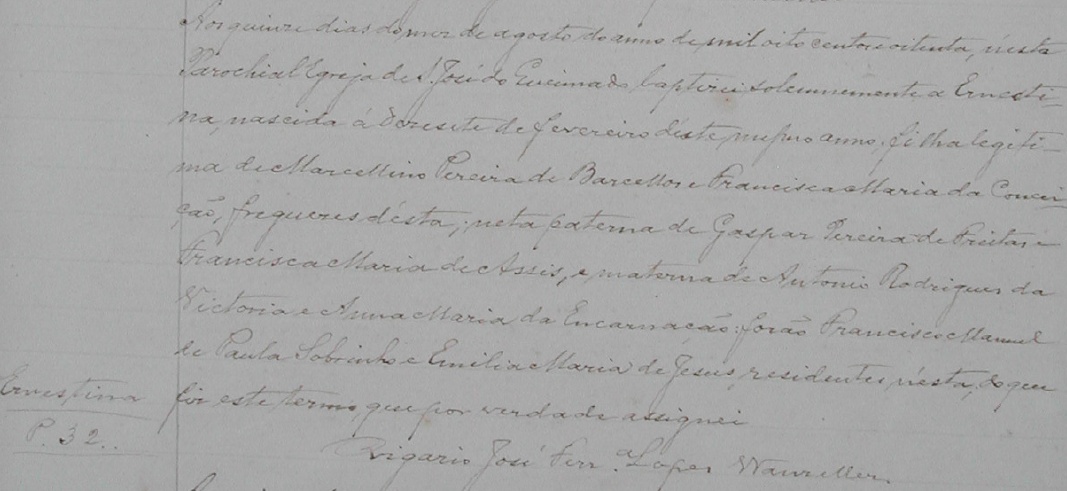 Aos quinze dias do mez de agosto do anno de mil oito centos e oitenta, n'esta
Parochial Egreja de S. José do Queimado baptizei solemnemente a Ernesti-
na, nascida á dezesete de fevereiro d'este mesmo anno, filha legiti-
ma de Marcellino Pereira de Barcellos e Francisca Maria da Concei-
ção, freguezes d'esta; neta paterna de Gaspar Pereira de Freitas e
Francisca Maria de Assis, e materna de Antonio Rodrigues da
Victoria e Anna Maria da Encarnação: forão Francisco Manuel
de Paula Sobrinho e Emilia Maria de Jesus, residentes n'esta, do que
Ernestina
fiz este termo, que por verdade assignei
P. 32..
Vigario José Ferr.ª Lopes Wanzeller